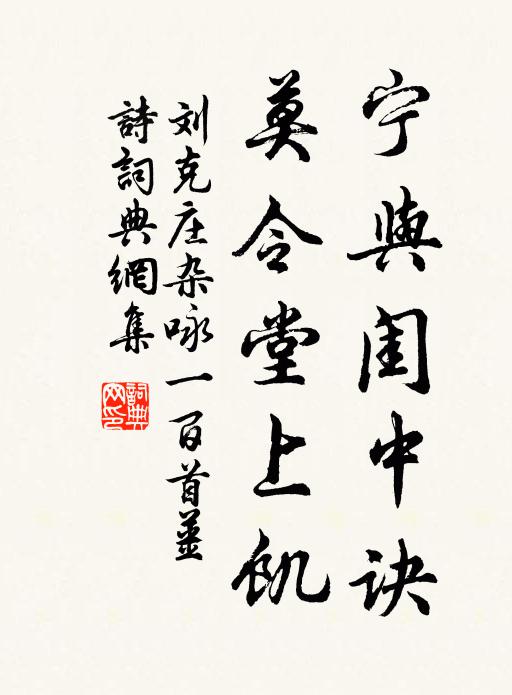 宁與闺中诀
莫令堂上飢
刘克庄杂咏一百首薑
詩詞典網集
詞典网印